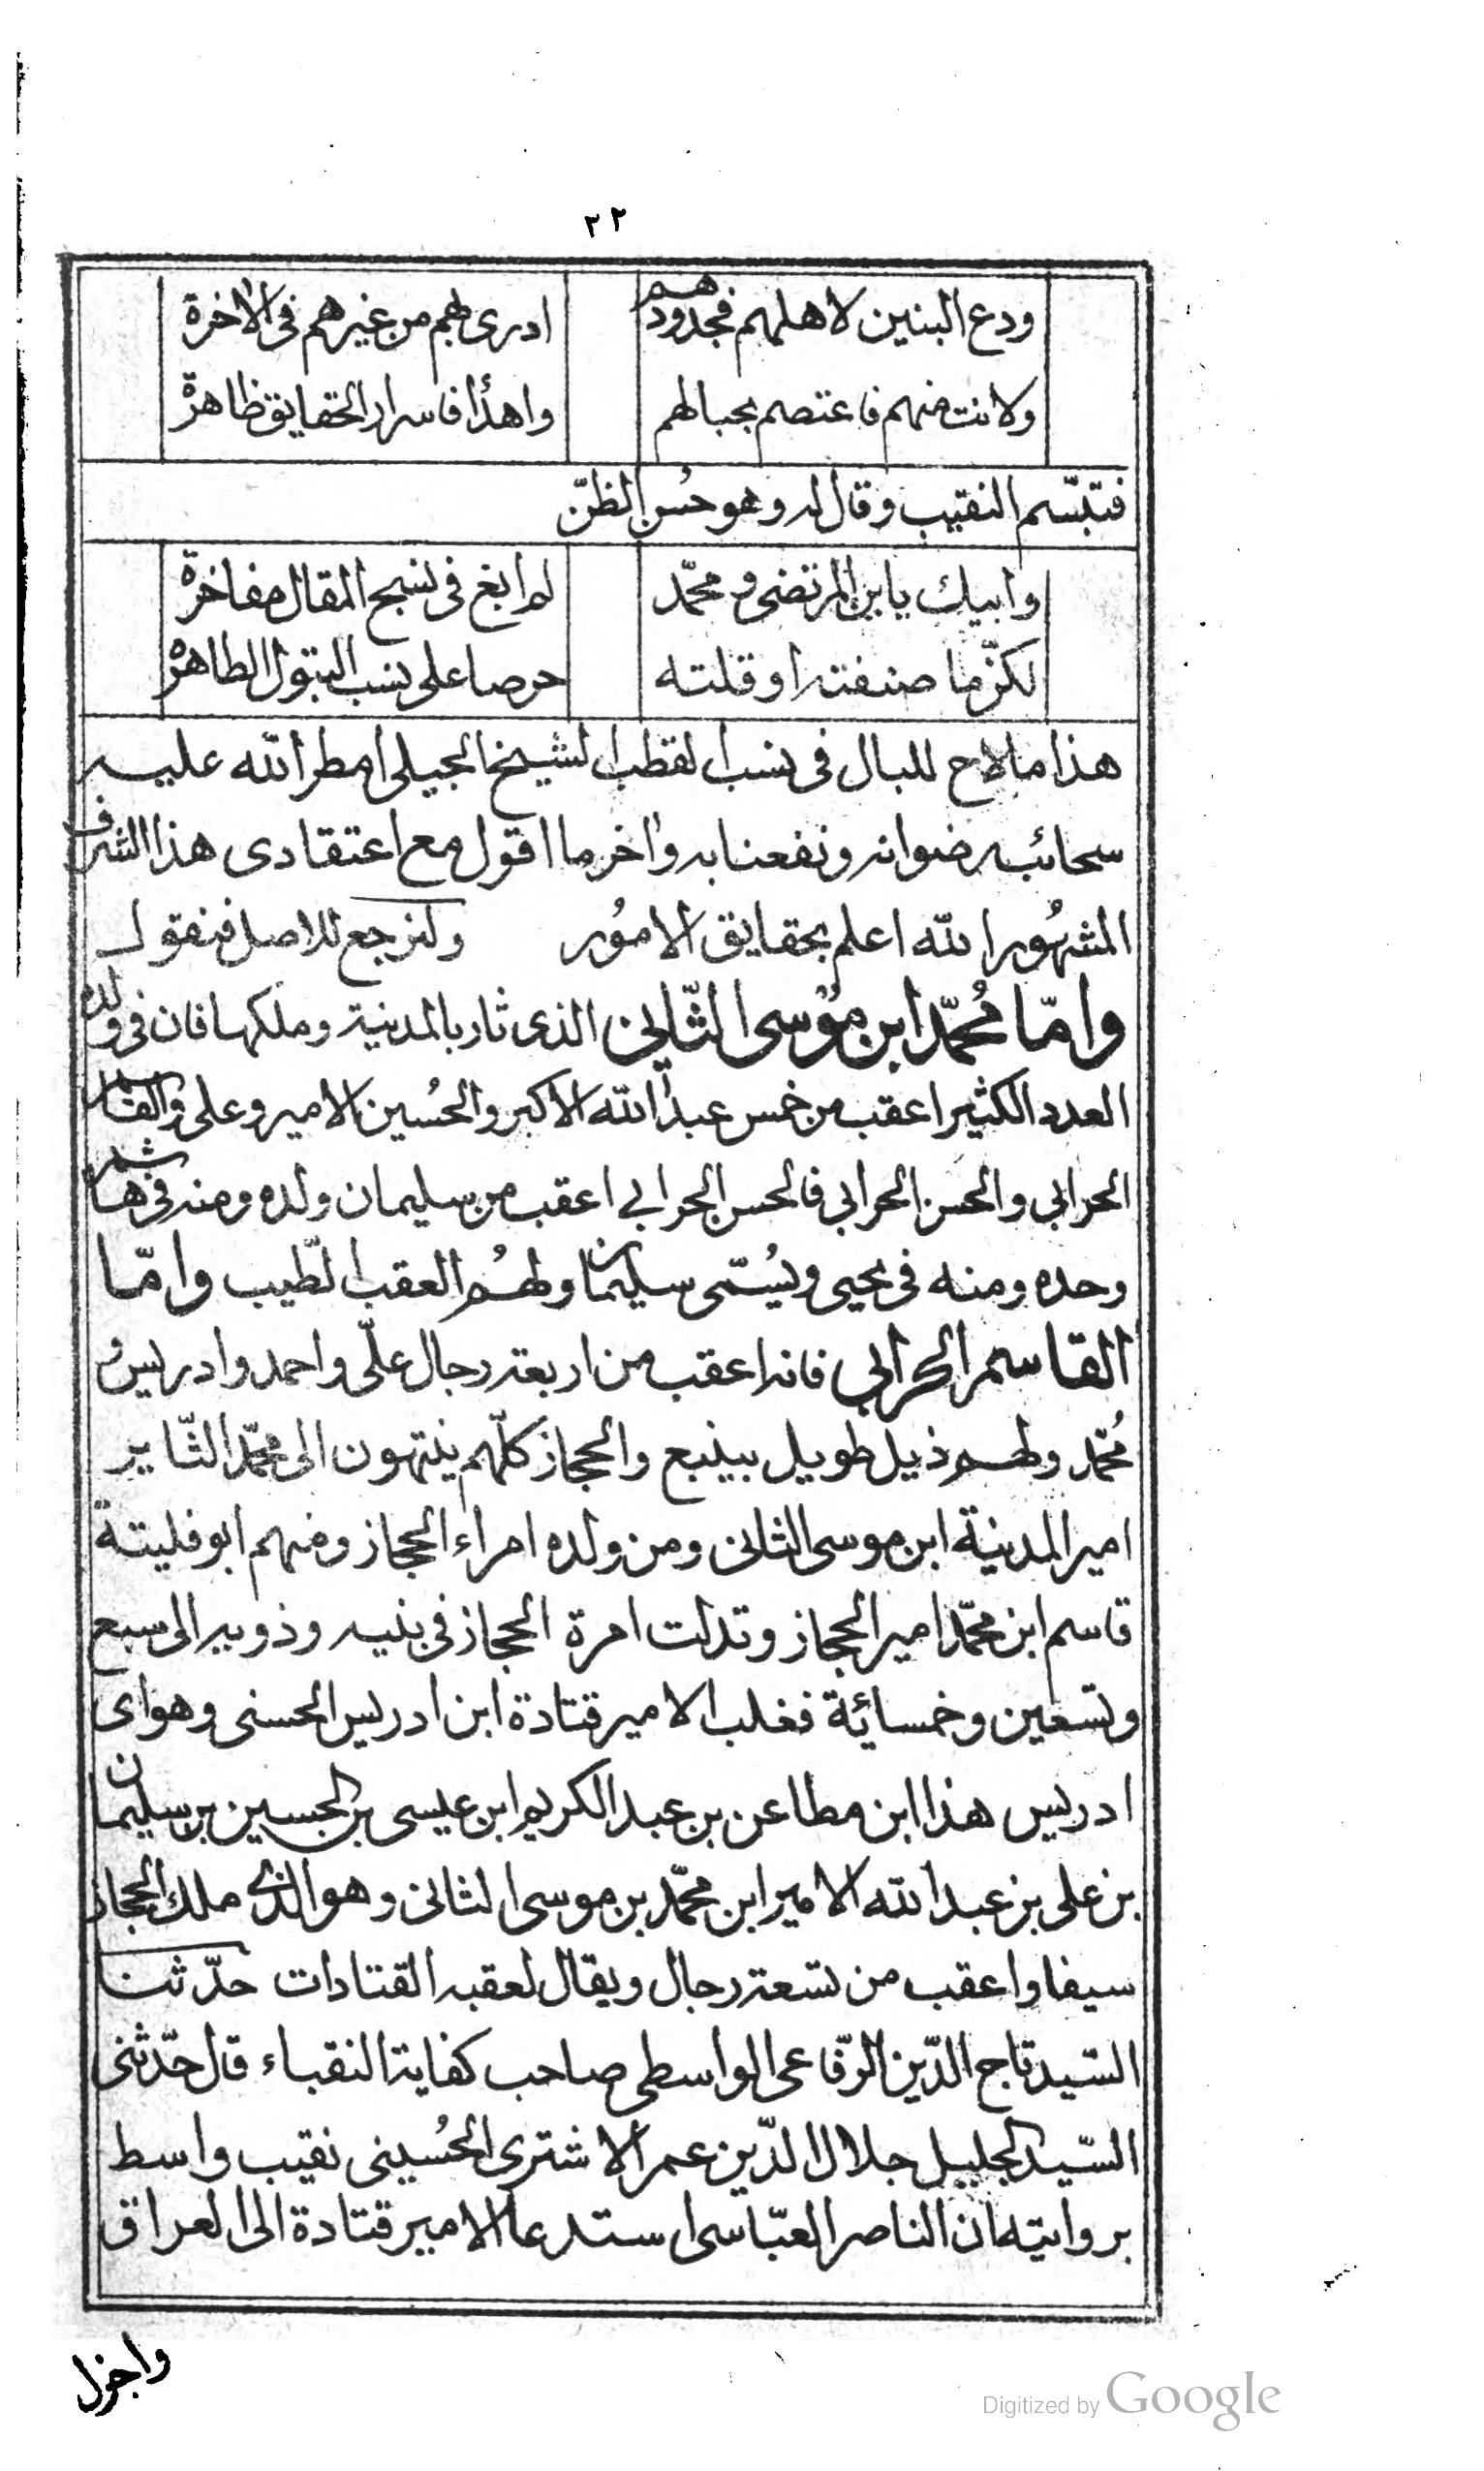 ٢٢
ودع البنين لاهلهم فجدودهم ادرى بهم من غيرهم فى الآخرة
ولانت منهم فاعتصم بحبالهم واهدأ فاسرار الحقايق ظاهرة
فتبسّم النقيب وقال له وهو حسُن الظنّ
وابيك يابن المرتضى ومحمّد لم ابغ فى نسج المقال مفاخرة
لكنّ ما صنفته او قلته حرصا على نسب البتول الطاهره
هذا ما لاح للبال فى نسب القطب الشيخ الجيلى امطر الله عليه
سحائب رضوانه ونفعنا به وآخر ما اقول مع اعتقادى هذا الشرف
المشهُور الله اعلم بحقايق الامُور ولنرجع للاصل فنقول
وامّا مُحمّد ابن مُوسى الثّانى الذى ثار بالمدينة وملكها فان فى ولده
العدد الكثير اعقب من خمس عبد الله الاكبر والحُسين الامير وعلى والقاسم
الحرابى والحسن الحرابى فالحسن الحرابى اعقب من سليمان ولده ومنه فى هاشم
وحده ومنه فى يحيى ويُسمّى سليمان ولهُم العقب الطّيب وامّا
القاسم الحرابى فانه اعقب من اربعة رجال علىّ واحمد وادريس و
مُحمّد ولهم ذيل طويل بينبع والحجاز كلّهم ينتهون الى محمّد الثّاير
امير المدينة ابن موسى الثانى ومن ولده امراء الحجاز ومنهم ابو فليتة
قاسم ابن محمّد امير الحجاز وتدلت امرة الحجاز فى بنيه وذويه الى سبع
وتسعين وخمسائة فغلب الامير قتادة ابن ادريس الحسنى وهو اى
ادريس هذا ابن مطاعن بن عبد الكريم ابن عيسى بن الحسين بن سليمان
بن على بن عبد الله الامير ابن محمّد بن موسى الثانى وهو الذى ملك الحجاز
سيفا واعقب من تسعة رجال ويقال لعقبه القتادات حدّثنا
السّيد تاج الدّين الرّفاعى الواسطى صاحب كفاية النقباء قال حدّثنى
السّيد الجليل جلال الدّين عمر الاشترى الحُسينى نقيب واسط
بروايته ان الناصر العبّاسى استدعا الامير قتادة الى العراق
واجزل
Digitized by Google